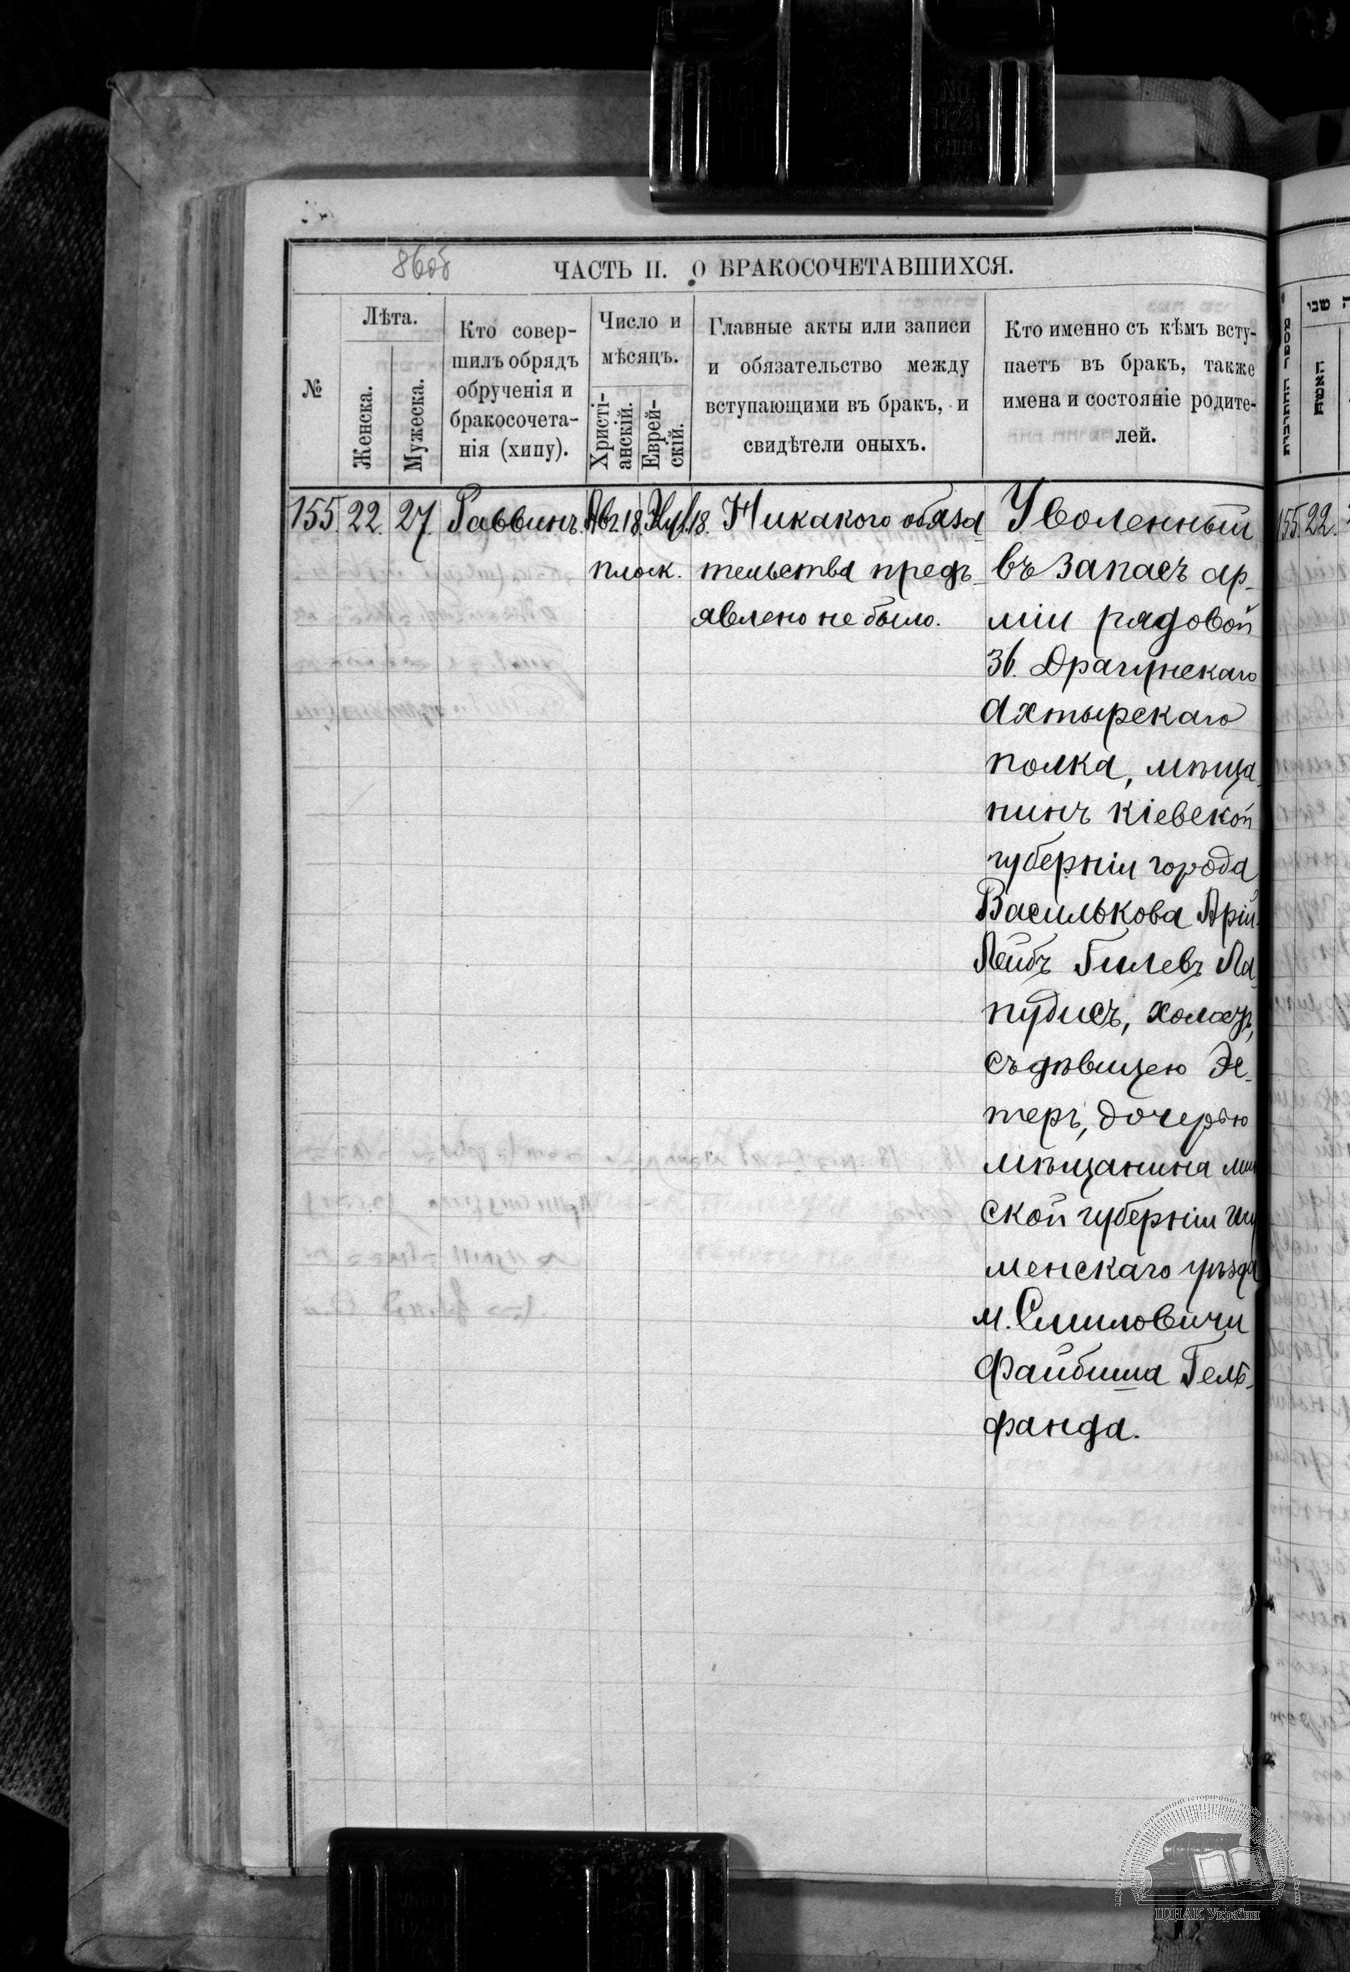 86об
ЧАСТЬ II. О БРАКОСОЧЕТАВШИХСЯ.
№
Лѣта.
Женска.
Мужеска.
Кто совер-
шилъ обрядъ
обрученія и
бракосочета-
нія (хипу).
Число и
мѣсяцъ.
Христі-
анскій.
Еврей-
скій.
Главные акты или записи
и обязательство между
вступающими въ бракъ, и
свидѣтели оныхъ.
Кто именно съ кѣмъ всту-
паетъ въ бракъ, также
имена и состояніе родите-
лей.
155. 22. 27. Раввинъ. Авг. 18. 18.
Никакого обяза
тельства предъ
явлено не было.
Уволенный
въ запасъ ар-
міи рядовой
36. Драгунскаго
Ахтырскаго
полка, мѣща
нинъ Кіевской
губерніи города
Василькова Арій
Лейбъ Гилевъ Ла
пубисъ, холост,
съ дѣвицею Эс-
теръ, дочерью
мѣщанина мин
ской губерніи Игу
менскаго уѣзда
м. Смиловичи
Файбиша Гель-
фанда.
מספר החתונות
האשה
שני
155. 22.
ЦДІАК України